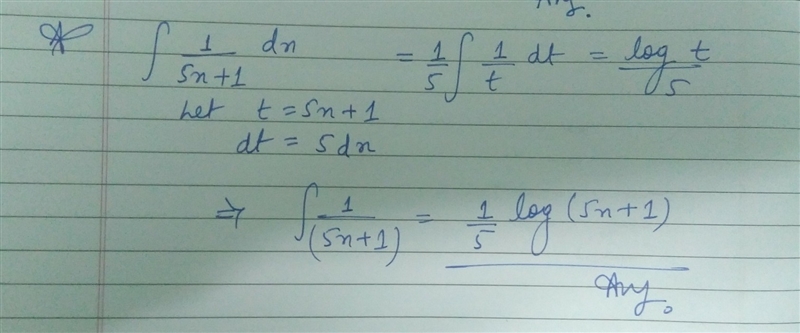 Ans.
∫ 1/(5x+1) dx = 1/5 ∫ 1/t dt = log t/5
Let t = 5x+1
dt = 5dx
⇒ ∫ 1/(5x+1) = 1/5 log (5x+1)
Ans.